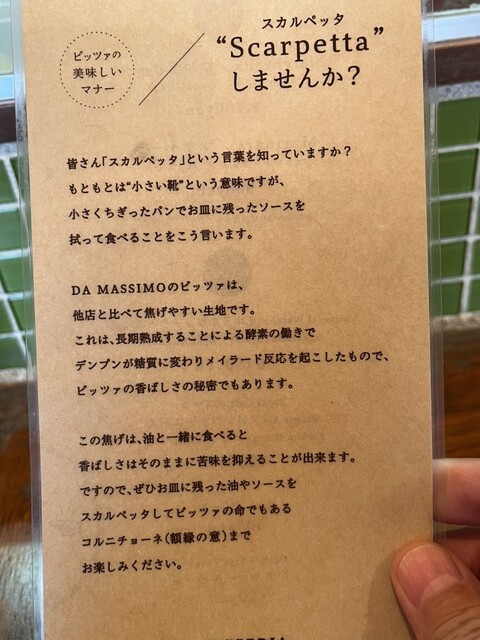 ピッツァの
美味しい
マナー
スカルペッタ
“Scarpetta”
しませんか？
皆さん「スカルペッタ」という言葉を知っていますか？
もともとは“小さい靴”という意味ですが、
小さくちぎったパンでお皿に残ったソースを
拭って食べることをこう言います。
DA MASSIMOのピッツァは、
他店と比べて焦げやすい生地です。
これは、長期熟成することによる酵素の働きで
デンプンが糖質に変わりメイラード反応を起こしたもので、
ピッツァの香ばしさの秘密でもあります。
この焦げは、油と一緒に食べると
香ばしさはそのままに苦味を抑えることが出来ます。
ですので、ぜひお皿に残った油やソースを
スカルペッタしてピッツァの命でもある
コルニチョーネ（額縁の意）まで
お楽しみください。